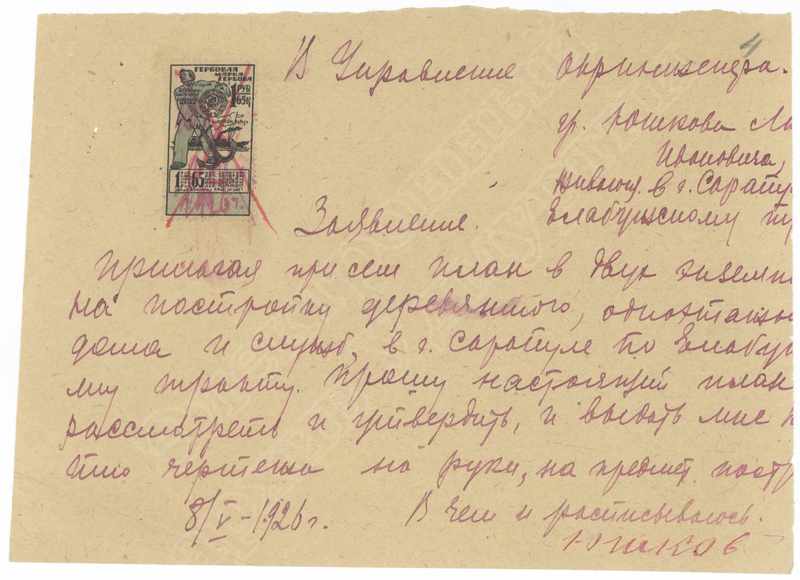 4
В Управление окринженера.
гр. Юшкова
Ивановича,
живущ. в г. Сарапу
Елабужскому тр
ГЕРБОВАЯ
МАРКА
1 РУБ
65 К
1 65
Заявление.
Прилагая при сем план в двух экземп
на постройку деревянного, одноэтажно
дома и служб, в г. Сарапуле по Елабуж
му тракту. Прошу настоящий план
рассмотреть и утвердить, и выдать мне к
пию чертежа на руки, на предмет постр
8/V-1926 г.
В чем и расписываюсь.
Юшков